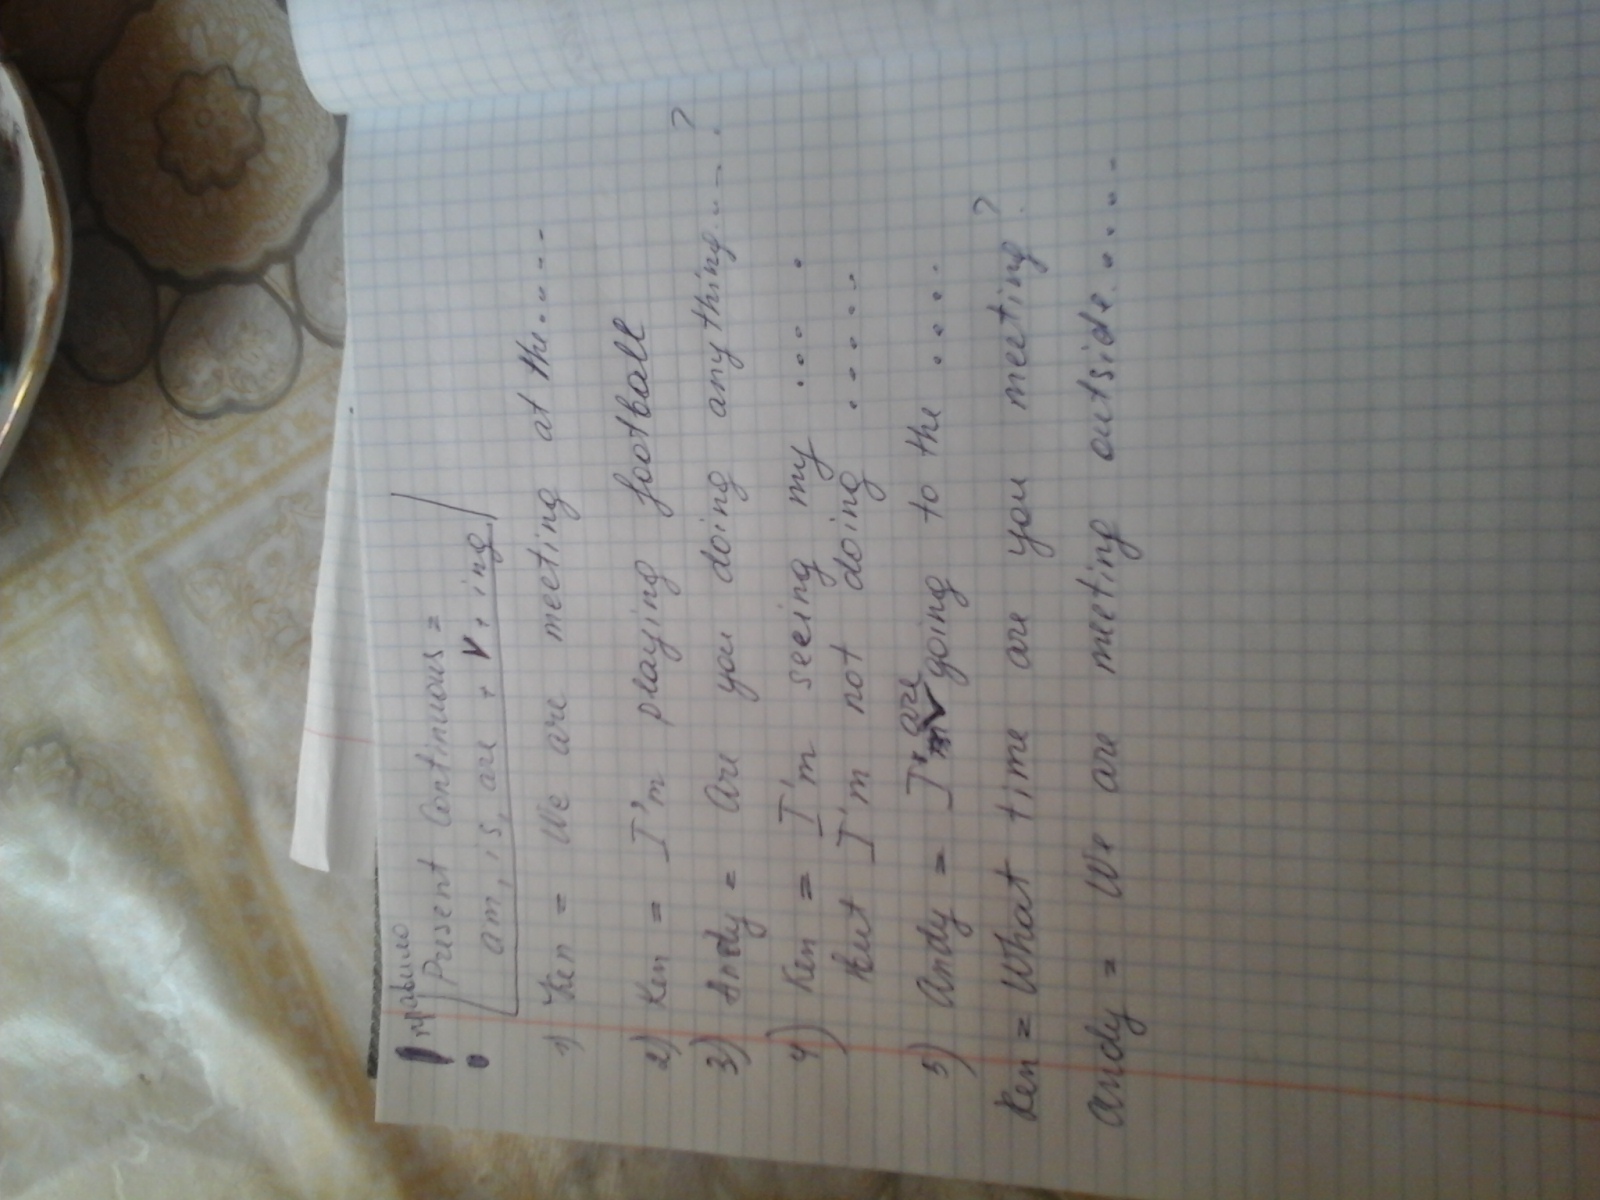 ! правило
Present Continuous =
am, is, are + V + ing
1) Ken = We are meeting at the.....
2) Ken = I'm playing football
3) Andy = Are you doing anything.....?
4) Ken = I'm seeing my .....
But I'm not doing .....
5) Andy = I' are going to the ....
Ken = What time are you meeting?
Andy = We are meeting outside.....